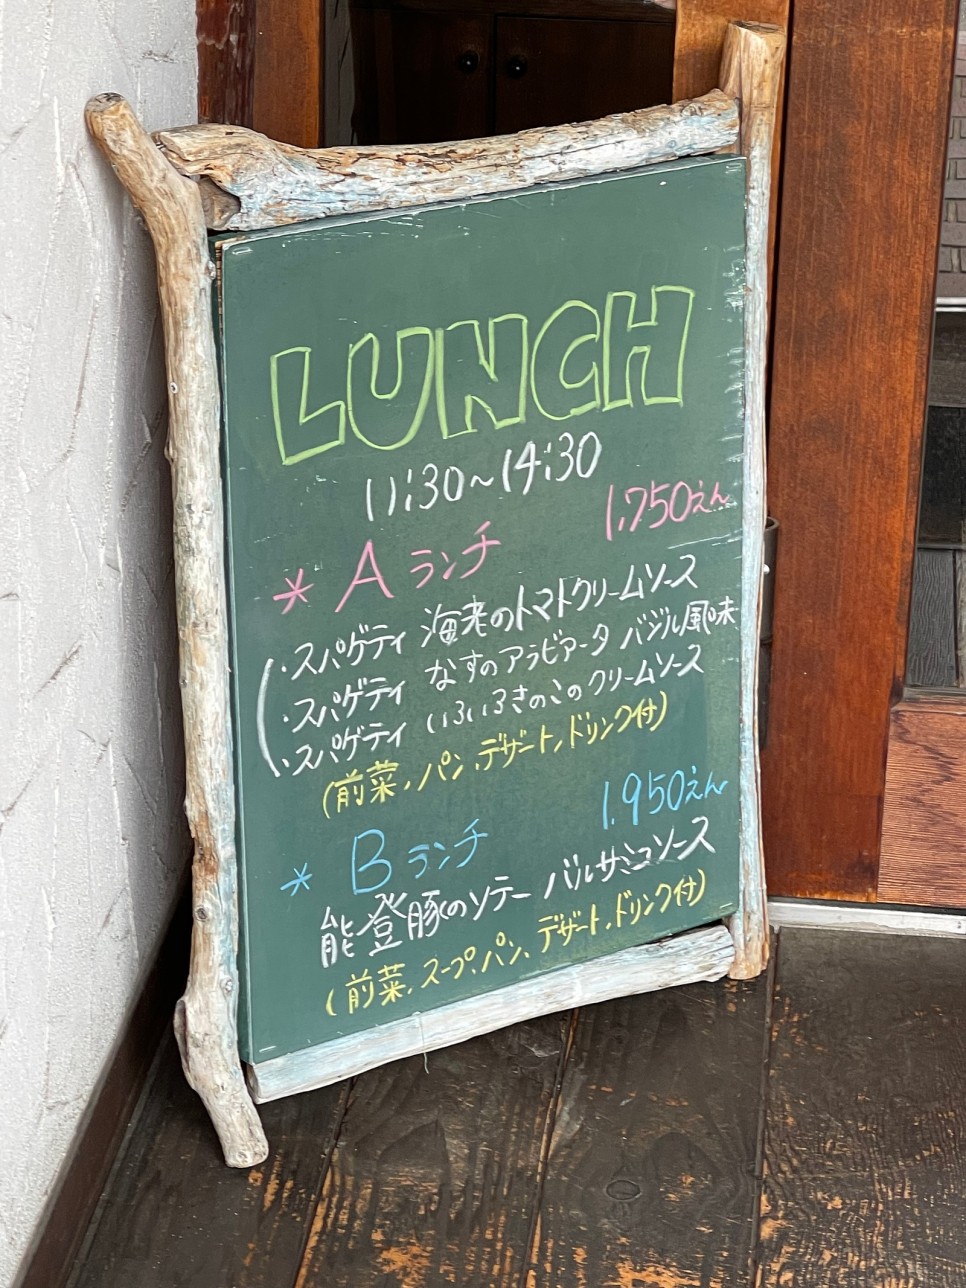 LUNCH
11:30~14:30
* Aランチ 1,750えん
・スパゲティ 海老のトマトクリームソース
・スパゲティ なすのアラビアータ バジル風味
・スパゲティ いろいろきのこのクリームソース
(前菜、パン、デザート、ドリンク付)
* Bランチ 1,950えん
能登豚のソテー バルサミコソース
(前菜、スープ、パン、デザート、ドリンク付)